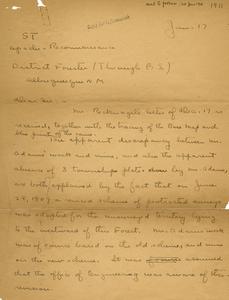 Jan. 17
1911
ST
District Forester (Through B.S.)
Albuquerque N.M.
Dear Sir:
Mr. Pockriage's letter of Dec. 17 is
received, together with the tracing of the Base Map and
blue prints of the same.
The apparent discrepancy between Mr.
Adams' work and mine, and also the apparent
absence of 3 township plats done by Mr. Adams,
are both explained by the fact that on June
28, 1909 a revised scheme of protracted surveys
was adopted for the unsurveyed territory lying
to the westward of this Forest. Mr. Adams' work
was of course based on the old scheme, and mine
on the new scheme. It was assumed
that the office of Engineering was aware of this
revision.